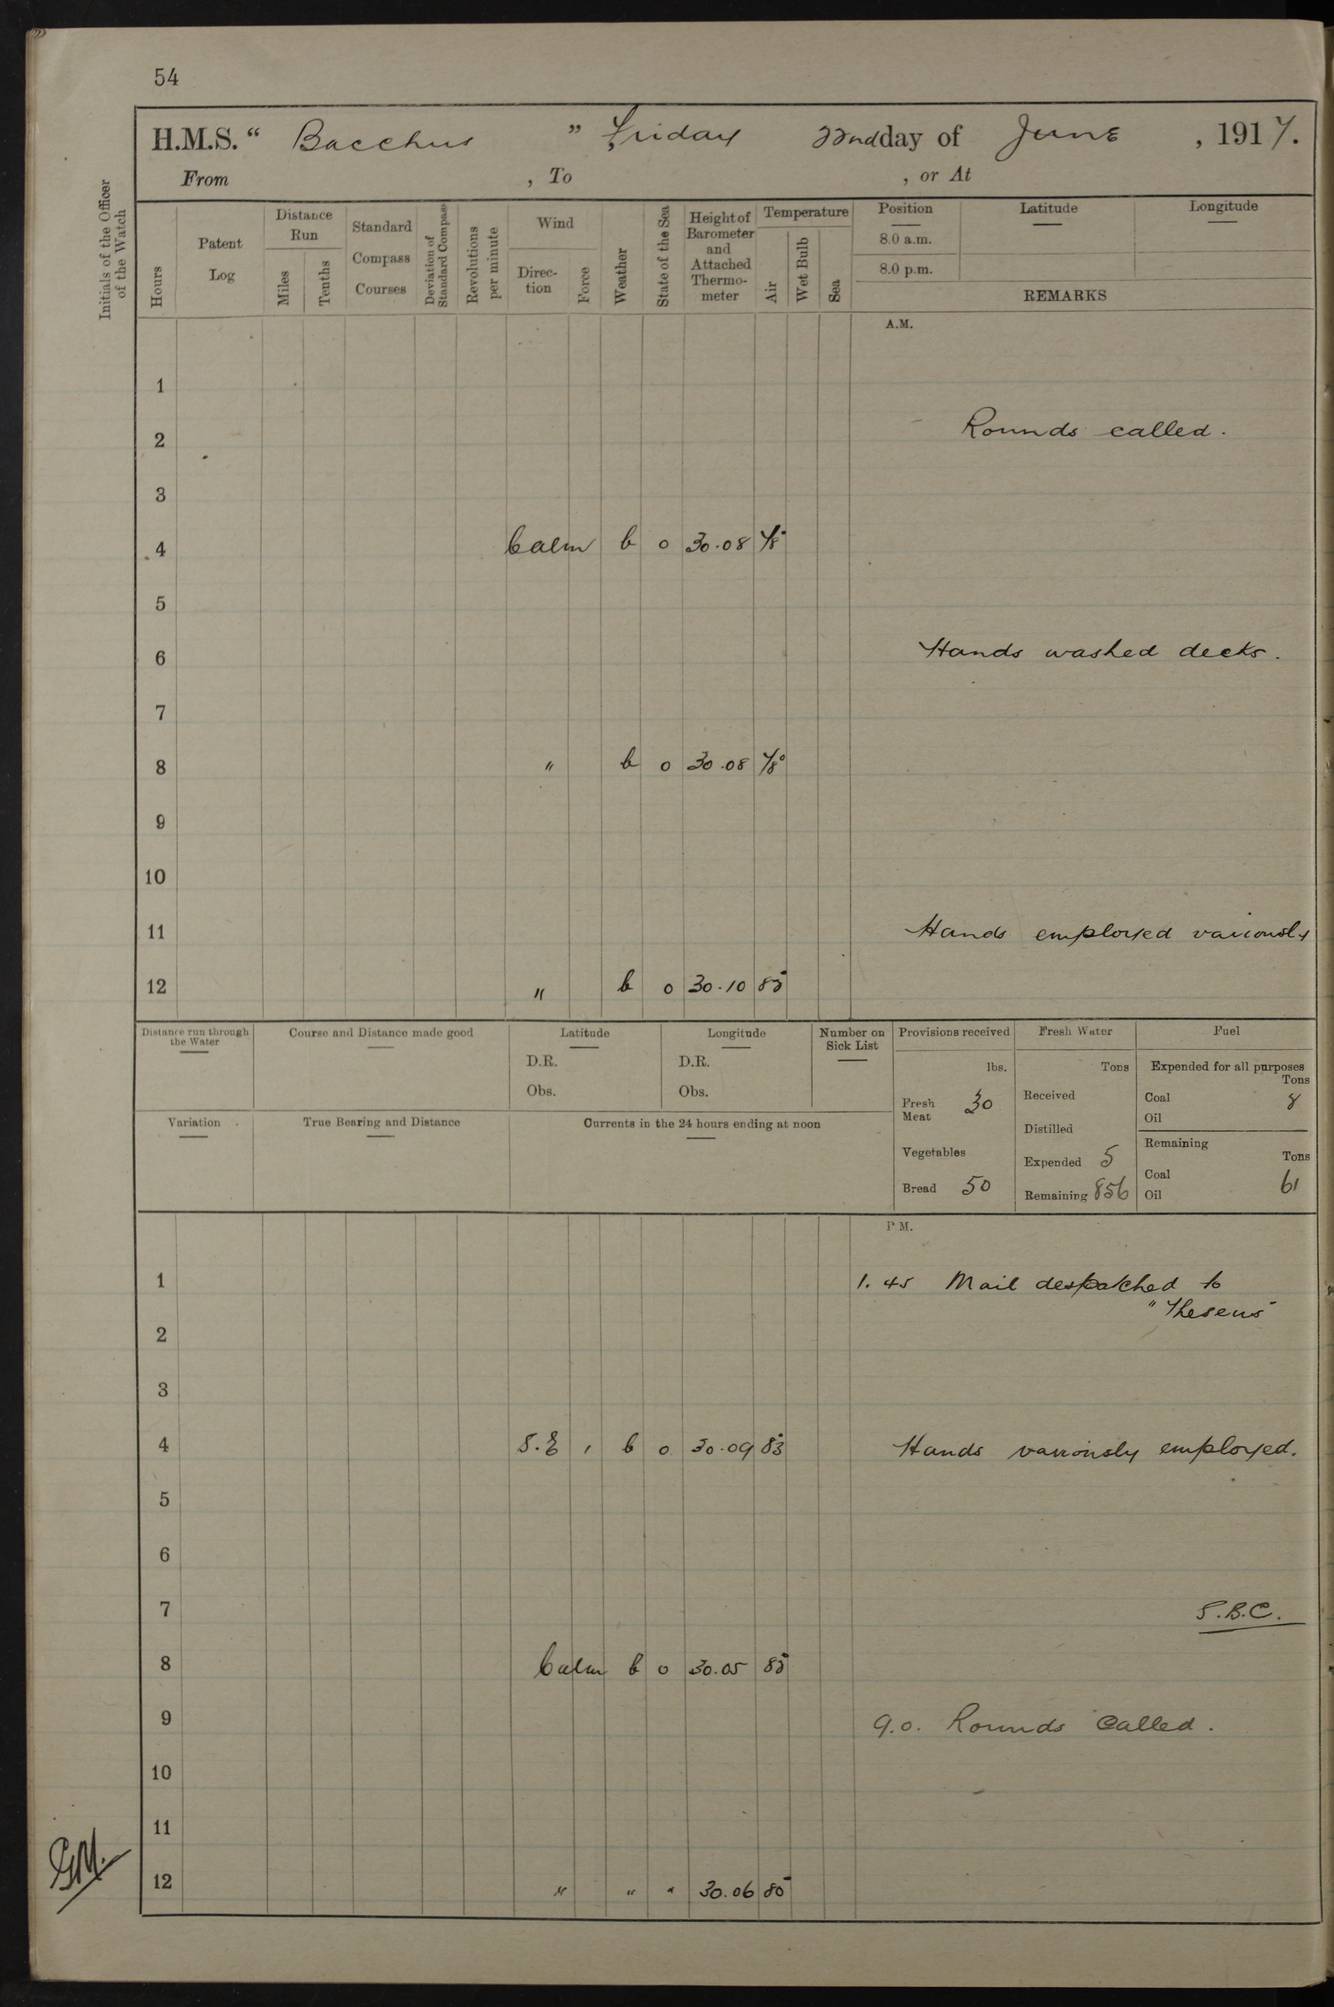 54
H.M.S. “ Bacchus ” Friday 22nd day of June , 1917.
From , To , or At
Initials of the Officer of the Watch
Hours
Patent Log
Distance Run
Miles
Tenths
Standard Compass Courses
Deviation of Standard Compass
Revolutions per minute
Wind
Direction
Force
Weather
State of the Sea
Height of Barometer and Attached Thermometer
Temperature
Air
Wet Bulb
Sea
Position Latitude Longitude
8.0 a.m.
8.0 p.m.
REMARKS
A.M.
1
2 Rounds called.
3
4 Calm b o 30.08 78°
5
6 Hands washed decks.
7
8 " b o 30.08 78°
9
10
11 Hands employed variously
12 " b o 30.10 85
Distance run through the Water
Course and Distance made good
Latitude
D.R.
Obs.
Longitude
D.R.
Obs.
Number on Sick List
Provisions received
lbs.
Fresh Meat 30
Vegetables
Bread 50
Fresh Water
Tons
Received
Distilled
Expended 5
Remaining 856
Fuel
Expended for all purposes
Tons
Coal 8
Oil
Remaining
Tons
Coal 61
Oil
Variation
True Bearing and Distance
Currents in the 24 hours ending at noon
P.M.
1 1.45 Mail despatched to
"Theseus"
2
3
4 S.E 1 b o 30.09 83 Hands variously employed.
5
6
7 S.B.C.
8 Calm b o 30.05 85
9 9.0. Rounds Called.
10
11
12 " " " 30.06 80